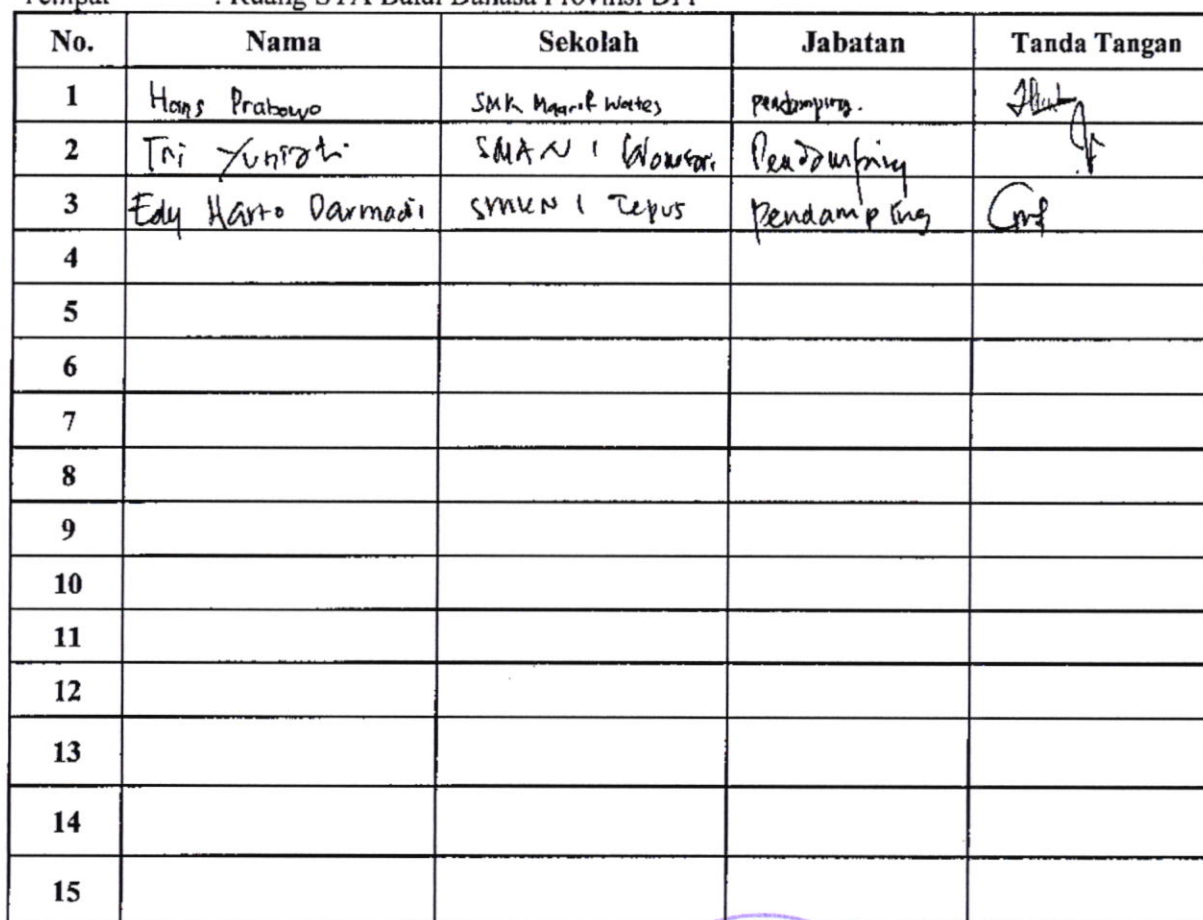 Tempat : Ruang STA Balai Bahasa Provinsi DIY
No. Nama Sekolah Jabatan Tanda Tangan
1 Hans Prabowo SMK Maarif Wates pendamping.
2 Tri Yuniati SMAN 1 Wonosari Pendamping
3 Edy Harto Darmadi SMKN 1 Tepus pendamping
4
5
6
7
8
9
10
11
12
13
14
15